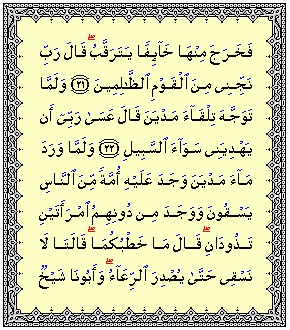 فَخَرَجَ مِنْهَا خَآئِفًا يَتَرَقَّبُ ۖ قَالَ رَبِّ
نَجِّنِى مِنَ ٱلْقَوْمِ ٱلظَّٰلِمِينَ ﴿٢١﴾ وَلَمَّا
تَوَجَّهَ تِلْقَآءَ مَدْيَنَ قَالَ عَسَىٰ رَبِّىٓ أَن
يَهْدِيَنِى سَوَآءَ ٱلسَّبِيلِ ﴿٢٢﴾ وَلَمَّا وَرَدَ
مَآءَ مَدْيَنَ وَجَدَ عَلَيْهِ أُمَّةً مِّنَ ٱلنَّاسِ
يَسْقُونَ وَوَجَدَ مِن دُونِهِمُ ٱمْرَأَتَيْنِ
تَذُودَانِ ۖ قَالَ مَا خَطْبُكُمَا ۖ قَالَتَا لَا
نَسْقِى حَتَّىٰ يُصْدِرَ ٱلرِّعَآءُ ۖ وَأَبُونَا شَيْخٌ